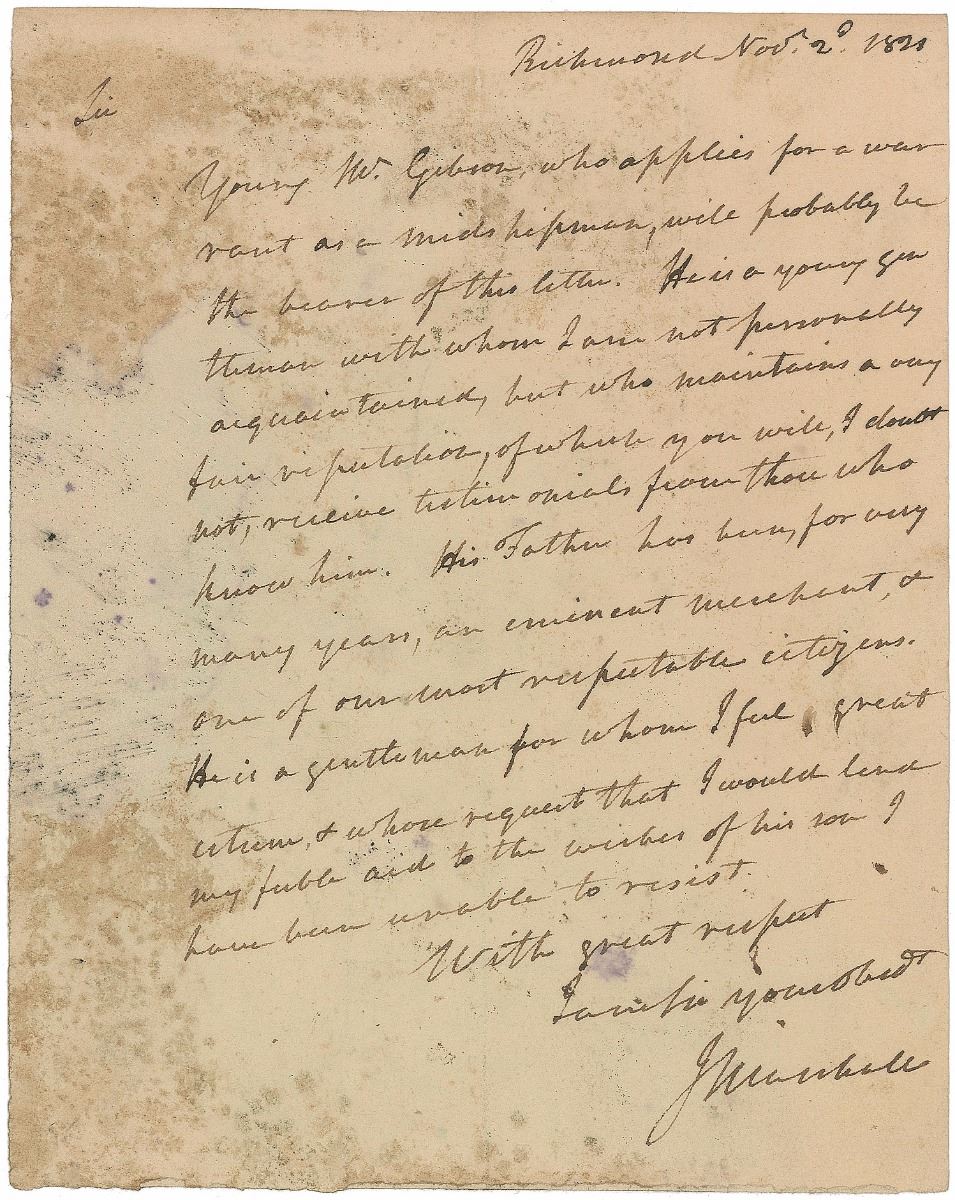 Richmond Nov. 2d. 1821
Sir
Young Mr. Gibson, who applies for a war
rant as a midshipman, will probably be
the bearer of this letter. He is a young gen
tleman with whom I am not personally
acquaintained, but who maintains a very
fair reputation, of which you will, I doubt
not, receive testimonials from those who
know him. His Father has been, for very
many years, an eminent merchant, &
one of our most respectable citizens.
He is a gentleman for whom I feel great
esteem, & whose request that I would lend
my feeble aid to the wishes of his son I
have been unable to resist.
With great respect
I am Sir your Obedt
J Marshall